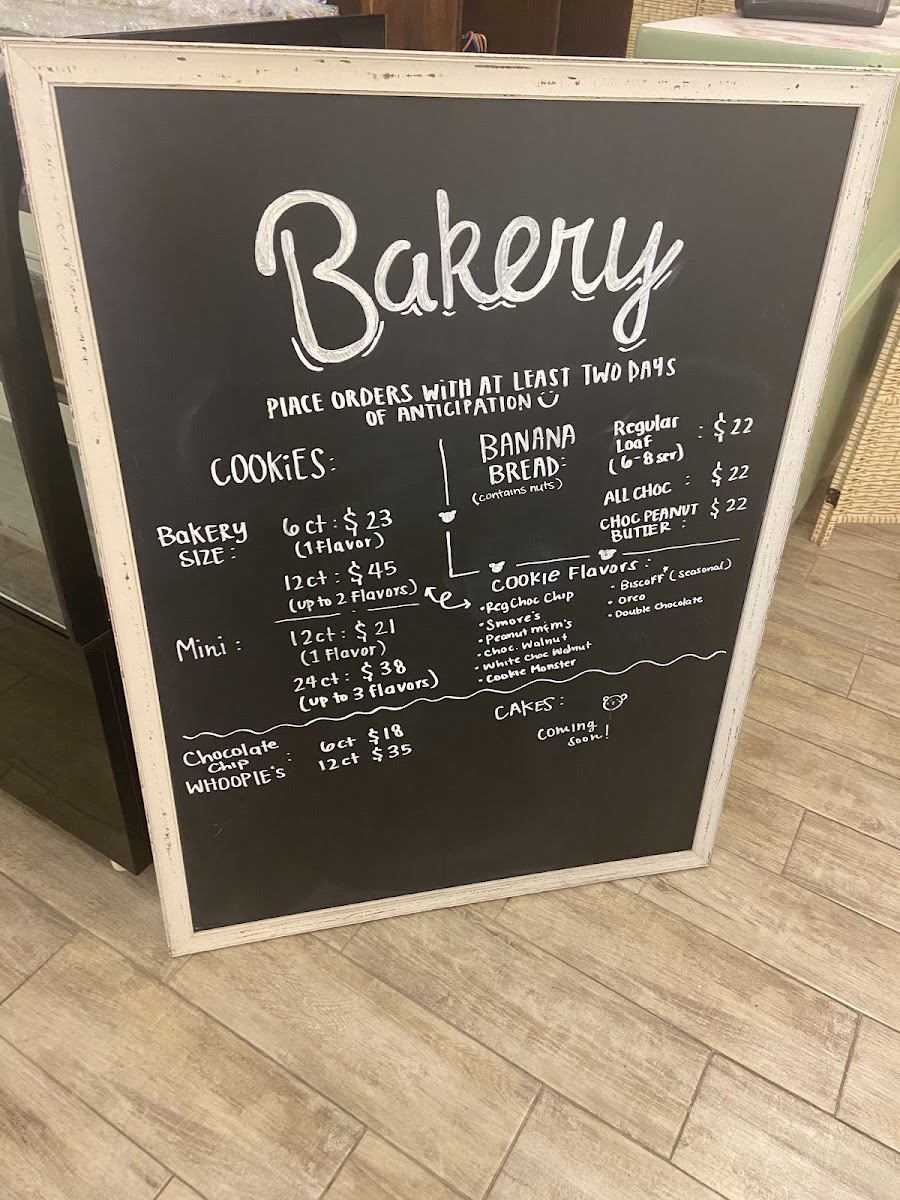 Bakery
PlACE ORDERS WiTH AT LEAST TWO DAYS
OF ANTICIPATION
COOKiES:
BAKERY
SIZE:
6 ct : $ 23
(1 Flavor)
12 ct : $ 45
(up to 2 Flavors)
Mini :
12ct : $ 21
(1 Flavor)
24 ct : $ 38
(up to 3 flavors)
Chocolate
Chip :
WHOOPIE's
6ct $18
12ct $35
BANANA
BREAD:
(contains nuts)
Regular
Loaf : $ 22
(6-8 ser)
ALL CHOC : $ 22
CHOC PEANUT $ 22
BUTTER :
Cookie Flavors :
• Reg Choc Chip
• Smore's
• Peanut m&m's
• Choc. Walnut
• White Choc Walnut
• Cookie Monster
• Biscoff* (seasonal)
• Oreo
• Double Chocolate
CAKES:
coming
soon!